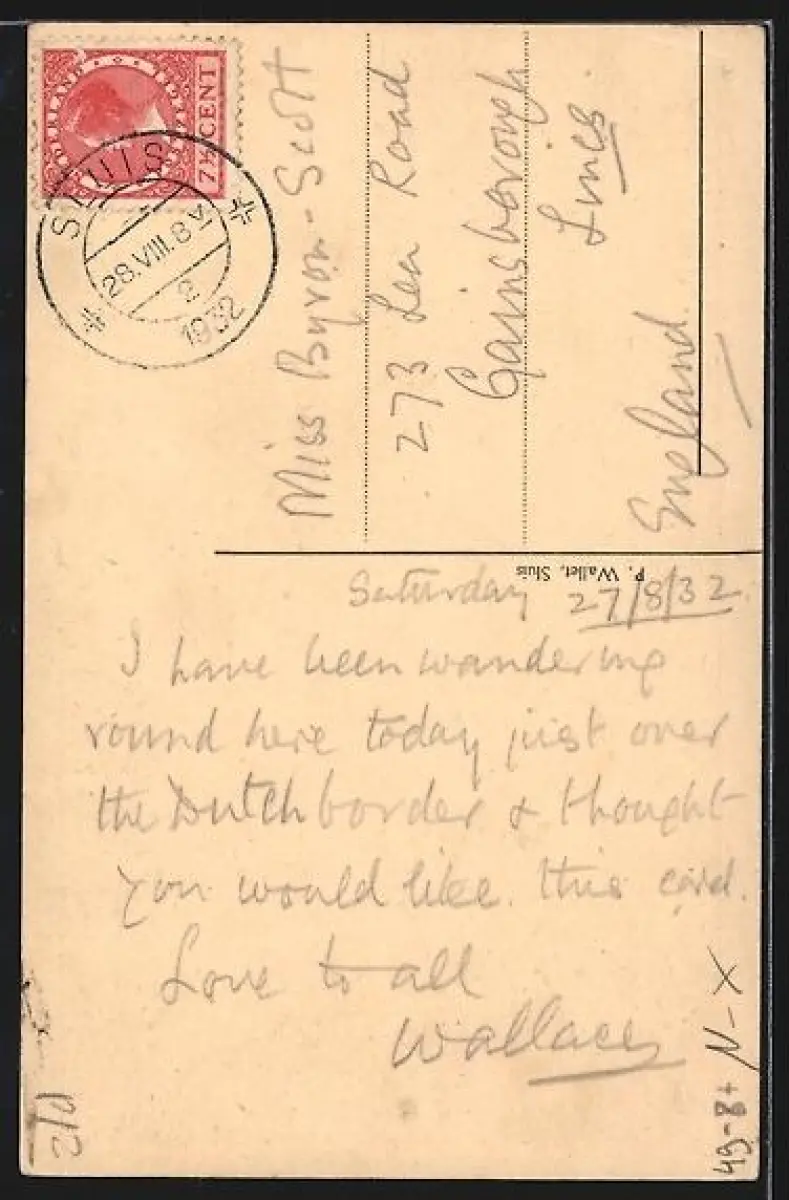 NEDERLAND
7½ CENT
SLUIS
28.VIII.8 V
2
1932
Miss Byron-Scott
273 Lea Road
Gainsborough
Lincs
England
P. Wallet, Sluis
Saturday 27/8/32
I have been wandering
round here today just over
the Dutch border & thought
you would like this card.
Love to all
Wallace
N-X
49-8+